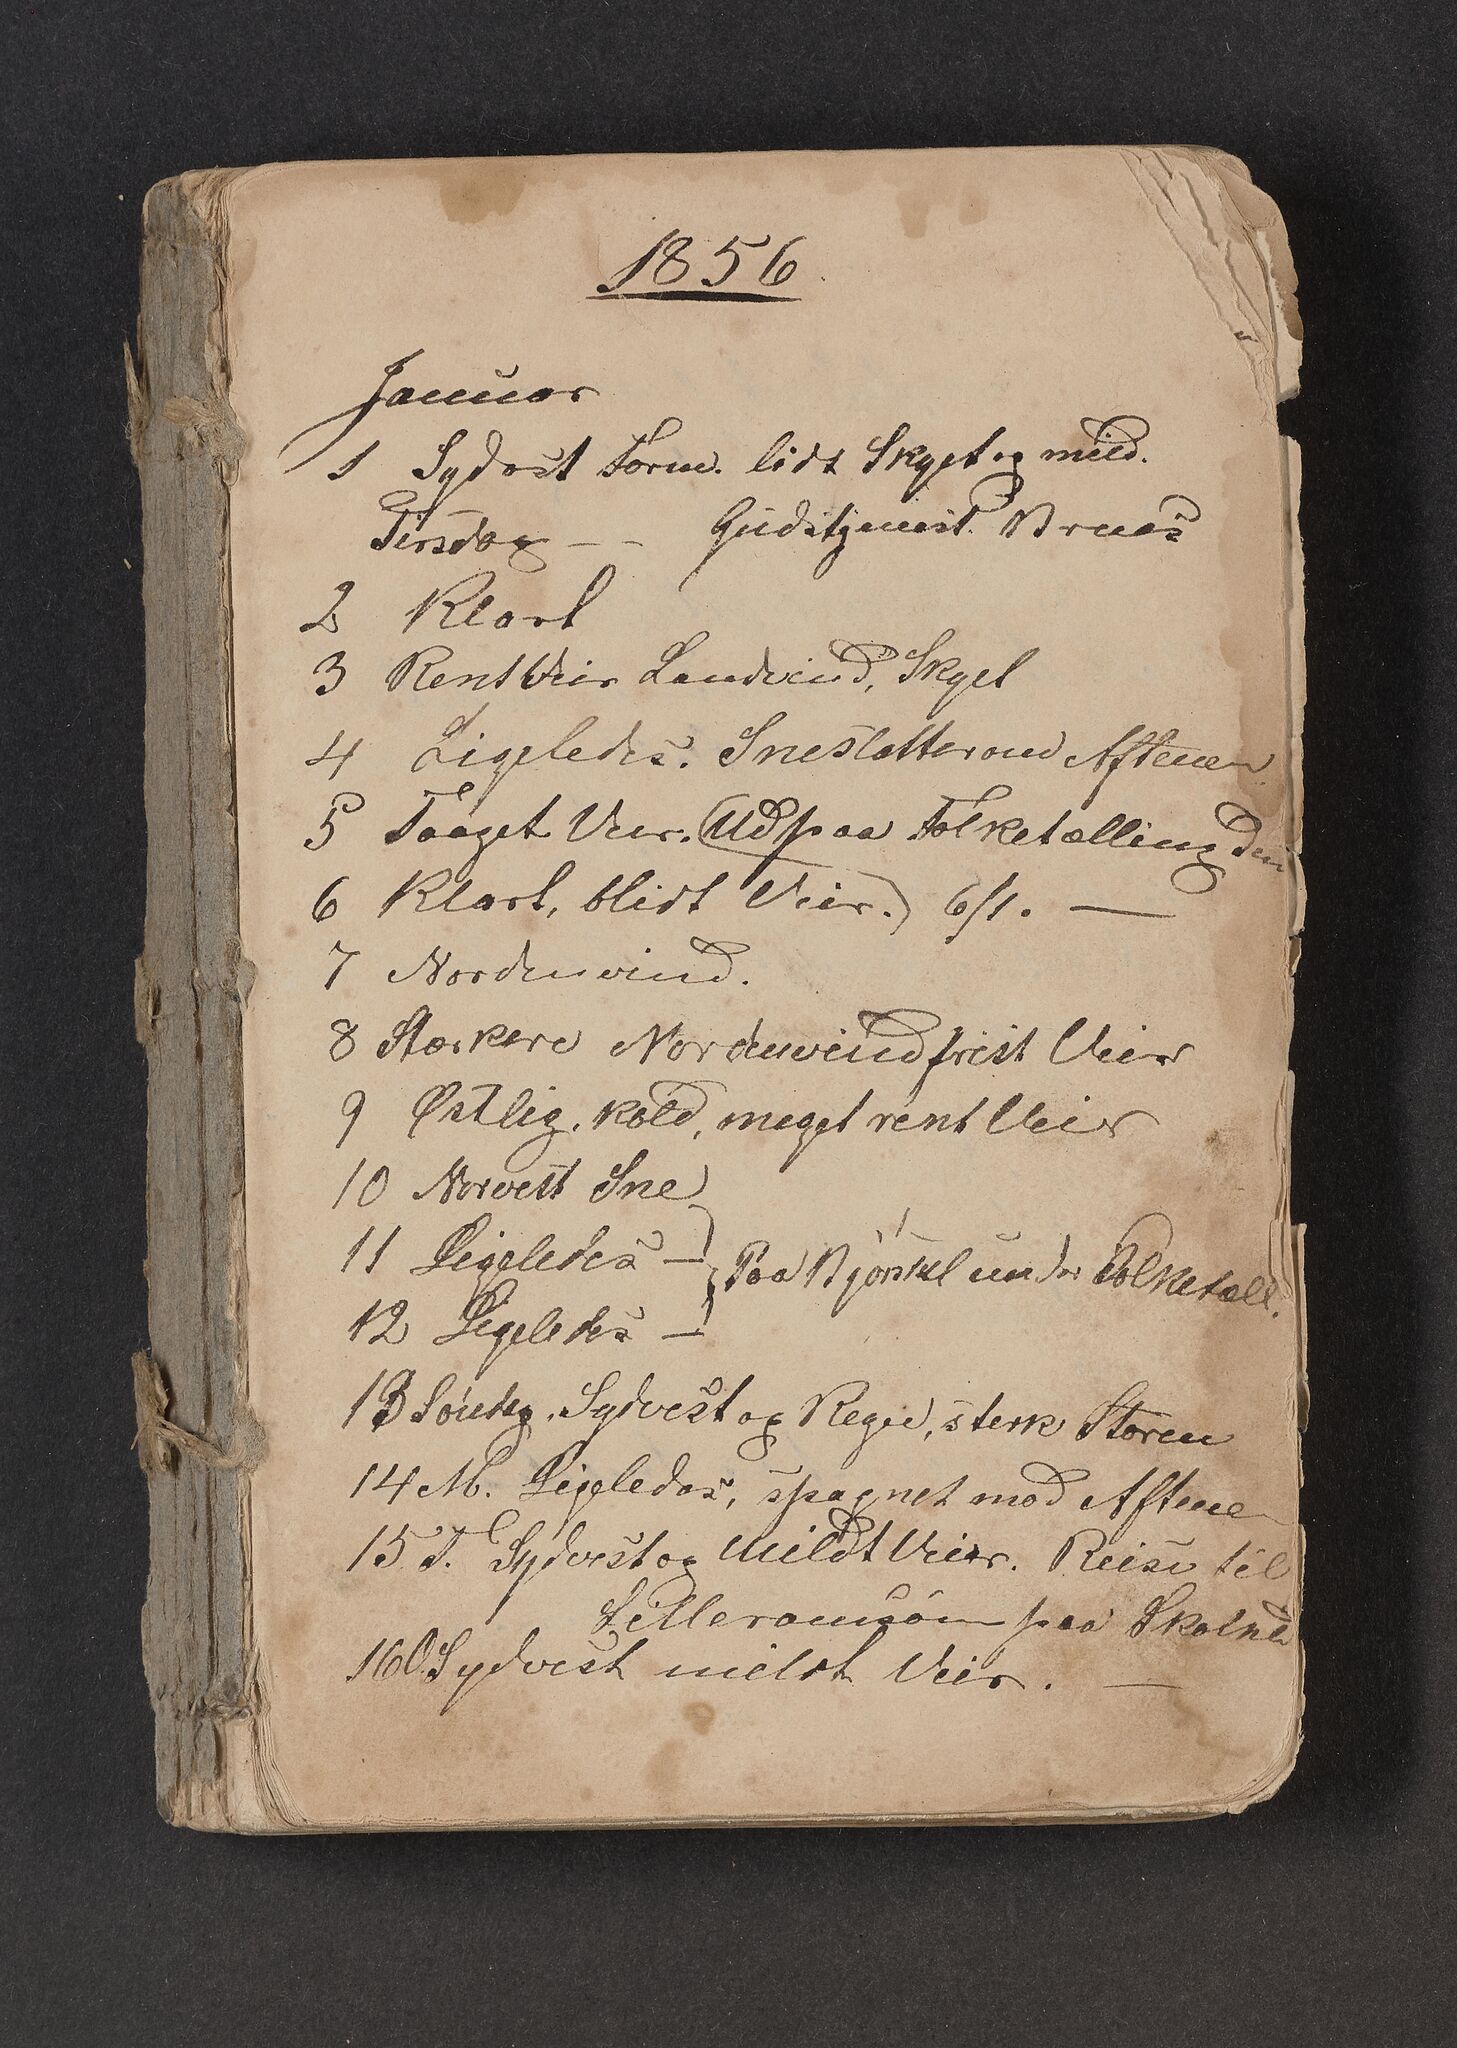 1856.
Januar
1 Sydvest Form. lidt Skyet og mild.
Tirsdag - - Gudstjenest. Brues
2 Klart
3 Rent Veir Landvind, Skyet
4 Ligeledes. Sneslatter om Aftenen
5 Taaget Veir. (Ud paa Folketælling den
6 Klart, blidt Veir.) 6/1. —
7 Nordenvind.
8 Stærkere Nordenvind frist Veir
9 Østlig, kold, meget rent Veir
10 Norvest Sne
11 Ligeledes — } Paa under Folketæll.
12 Ligeledes —
13 Søndag. Sydvest og Regn, sterk Storm
14 M. Ligeledes, spagnet mod Aftenen
15 T. Sydvest og mildt Veir. Reise til
Lilleramsøen paa
16 O. Sydvest mildt Veir. —